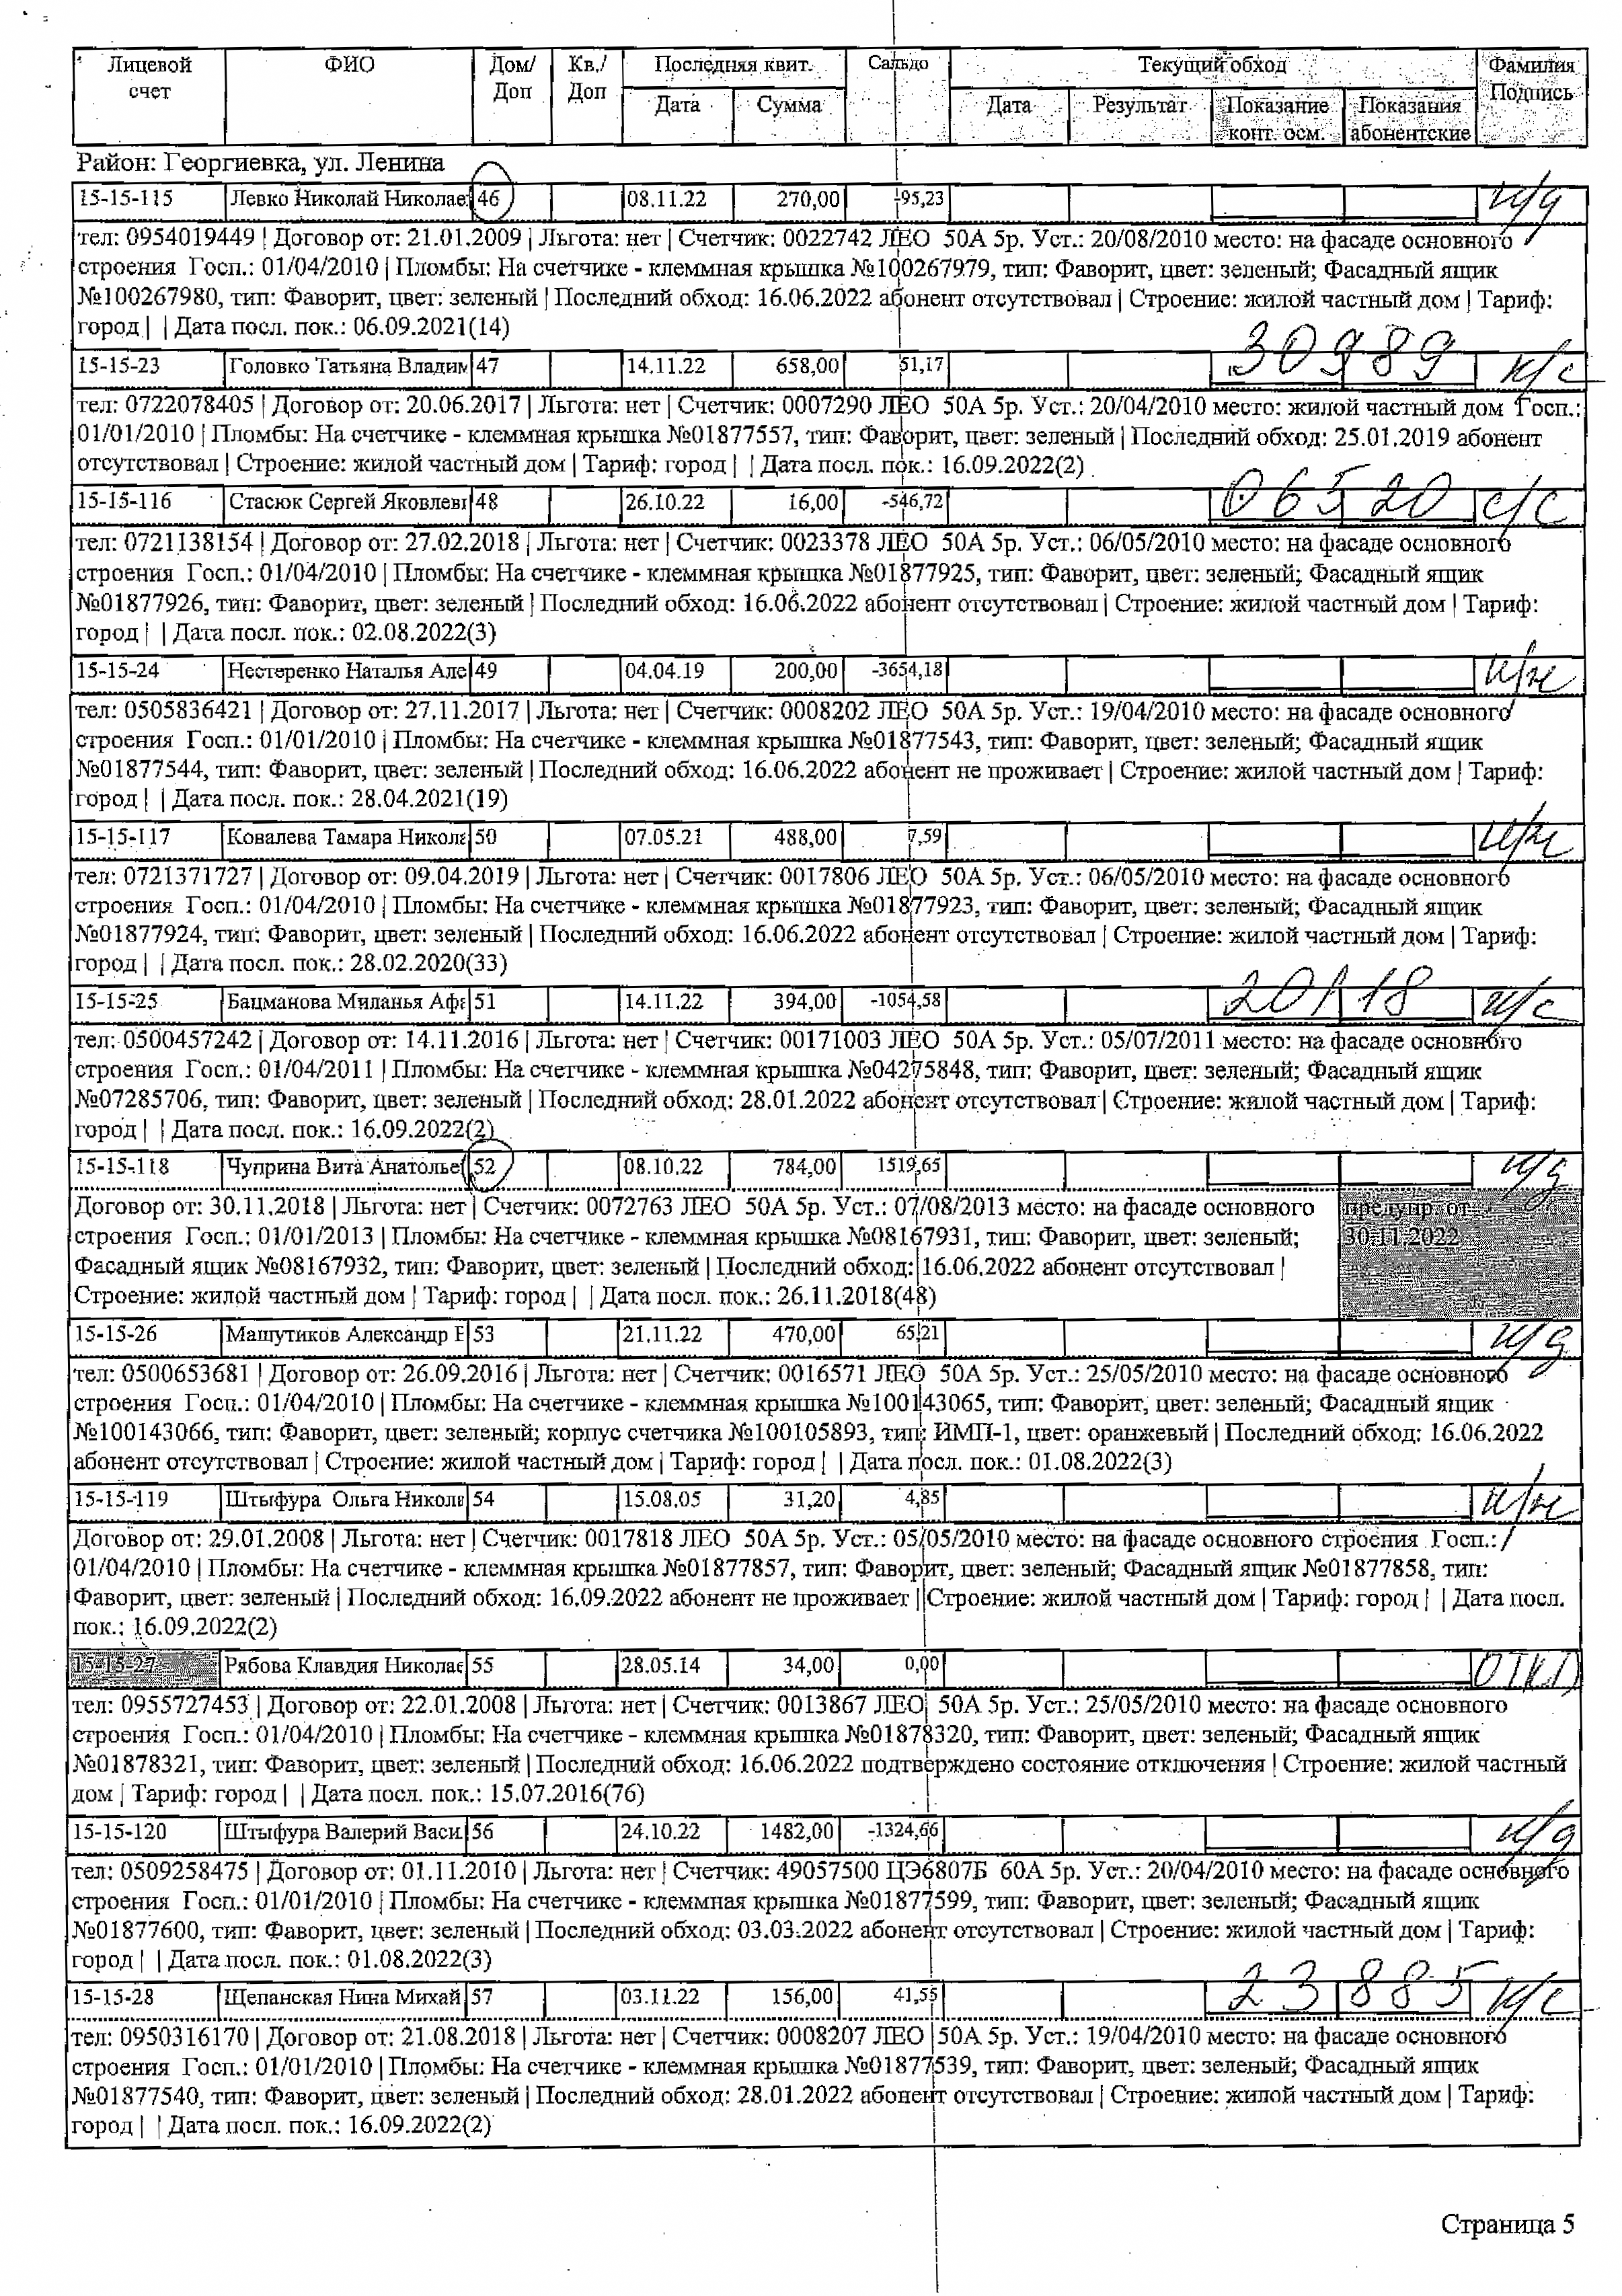 Лицевой счет ФИО Дом/ Доп Кв./ Доп Последняя квит. Сальдо Текущий обход Фамилия Подпись
Дата Сумма Дата Результат Показание конт. осм. Показания абонентские
Район: Георгиевка, ул. Ленина
15-15-115 Левко Николай Николае 46 08.11.22 270,00 -95,23 н/д
тел: 0954019449 | Договор от: 21.01.2009 | Льгота: нет | Счетчик: 0022742 ЛЕО 50А 5р. Уст.: 20/08/2010 место: на фасаде основного
строения Госп.: 01/04/2010 | Пломбы: На счетчике - клеммная крышка №100267979, тип: Фаворит, цвет: зеленый; Фасадный ящик
№100267980, тип: Фаворит, цвет: зеленый | Последний обход: 16.06.2022 абонент отсутствовал | Строение: жилой частный дом | Тариф:
город | | Дата посл. пок.: 06.09.2021(14)
15-15-23 Головко Татьяна Владим 47 14.11.22 658,00 51,17 30989 н/с
тел: 0722078405 | Договор от: 20.06.2017 | Льгота: нет | Счетчик: 0007290 ЛЕО 50А 5р. Уст.: 20/04/2010 место: жилой частный дом Госп.:
01/01/2010 | Пломбы: На счетчике - клеммная крышка №01877557, тип: Фаворит, цвет: зеленый | Последний обход: 25.01.2019 абонент
отсутствовал | Строение: жилой частный дом | Тариф: город | | Дата посл. пок.: 16.09.2022(2)
15-15-116 Стасюк Сергей Яковлеви 48 26.10.22 16,00 -546,72 06520 с/с
тел: 0721138154 | Договор от: 27.02.2018 | Льгота: нет | Счетчик: 0023378 ЛЕО 50А 5р. Уст.: 06/05/2010 место: на фасаде основного
строения Госп.: 01/04/2010 | Пломбы: На счетчике - клеммная крышка №01877925, тип: Фаворит, цвет: зеленый; Фасадный ящик
№01877926, тип: Фаворит, цвет: зеленый | Последний обход: 16.06.2022 абонент отсутствовал | Строение: жилой частный дом | Тариф:
город | | Дата посл. пок.: 02.08.2022(3)
15-15-24 Нестеренко Наталья Але 49 04.04.19 200,00 -3654,18 н/ж
тел: 0505836421 | Договор от: 27.11.2017 | Льгота: нет | Счетчик: 0008202 ЛЕО 50А 5р. Уст.: 19/04/2010 место: на фасаде основного
строения Госп.: 01/01/2010 | Пломбы: На счетчике - клеммная крышка №01877543, тип: Фаворит, цвет: зеленый; Фасадный ящик
№01877544, тип: Фаворит, цвет: зеленый | Последний обход: 16.06.2022 абонент не проживает | Строение: жилой частный дом | Тариф:
город | | Дата посл. пок.: 28.04.2021(19)
15-15-117 Ковалева Тамара Никола 50 07.05.21 488,00 7,59 н/ж
тел: 0721371727 | Договор от: 09.04.2019 | Льгота: нет | Счетчик: 0017806 ЛЕО 50А 5р. Уст.: 06/05/2010 место: на фасаде основного
строения Госп.: 01/04/2010 | Пломбы: На счетчике - клеммная крышка №01877923, тип: Фаворит, цвет: зеленый; Фасадный ящик
№01877924, тип: Фаворит, цвет: зеленый | Последний обход: 16.06.2022 абонент отсутствовал | Строение: жилой частный дом | Тариф:
город | | Дата посл. пок.: 28.02.2020(33)
15-15-25 Бацманова Миланья Афа 51 14.11.22 394,00 -1054,58 20118 н/с
тел: 0500457242 | Договор от: 14.11.2016 | Льгота: нет | Счетчик: 00171003 ЛЕО 50А 5р. Уст.: 05/07/2011 место: на фасаде основного
строения Госп.: 01/04/2011 | Пломбы: На счетчике - клеммная крышка №04275848, тип: Фаворит, цвет: зеленый; Фасадный ящик
№07285706, тип: Фаворит, цвет: зеленый | Последний обход: 28.01.2022 абонент отсутствовал | Строение: жилой частный дом | Тариф:
город | | Дата посл. пок.: 16.09.2022(2)
15-15-118 Чуприна Вита Анатолье 52 08.10.22 784,00 1519,65 н/д
Договор от: 30.11.2018 | Льгота: нет | Счетчик: 0072763 ЛЕО 50А 5р. Уст.: 07/08/2013 место: на фасаде основного предупр. от
строения Госп.: 01/01/2013 | Пломбы: На счетчике - клеммная крышка №08167931, тип: Фаворит, цвет: зеленый; 30.11.2022
Фасадный ящик №08167932, тип: Фаворит, цвет: зеленый | Последний обход: 16.06.2022 абонент отсутствовал |
Строение: жилой частный дом | Тариф: город | | Дата посл. пок.: 26.11.2018(48)
15-15-26 Машутиков Александр В 53 21.11.22 470,00 65,21 н/д
тел: 0500653681 | Договор от: 26.09.2016 | Льгота: нет | Счетчик: 0016571 ЛЕО 50А 5р. Уст.: 25/05/2010 место: на фасаде основного
строения Госп.: 01/04/2010 | Пломбы: На счетчике - клеммная крышка №100143065, тип: Фаворит, цвет: зеленый; Фасадный ящик
№100143066, тип: Фаворит, цвет: зеленый; корпус счетчика №100105893, тип: ИМП-1, цвет: оранжевый | Последний обход: 16.06.2022
абонент отсутствовал | Строение: жилой частный дом | Тариф: город | | Дата посл. пок.: 01.08.2022(3)
15-15-119 Штыфура Ольга Никола 54 15.08.05 31,20 4,85 н/ж
Договор от: 29.01.2008 | Льгота: нет | Счетчик: 0017818 ЛЕО 50А 5р. Уст.: 05/05/2010 место: на фасаде основного строения Госп.:
01/04/2010 | Пломбы: На счетчике - клеммная крышка №01877857, тип: Фаворит, цвет: зеленый; Фасадный ящик №01877858, тип:
Фаворит, цвет: зеленый | Последний обход: 16.09.2022 абонент не проживает | Строение: жилой частный дом | Тариф: город | | Дата посл.
пок.: 16.09.2022(2)
15-15-27 Рябова Клавдия Николае 55 28.05.14 34,00 0,00 ОТКЛ
тел: 0955727453 | Договор от: 22.01.2008 | Льгота: нет | Счетчик: 0013867 ЛЕО 50А 5р. Уст.: 25/05/2010 место: на фасаде основного
строения Госп.: 01/04/2010 | Пломбы: На счетчике - клеммная крышка №01878320, тип: Фаворит, цвет: зеленый; Фасадный ящик
№01878321, тип: Фаворит, цвет: зеленый | Последний обход: 16.06.2022 подтверждено состояние отключения | Строение: жилой частный
дом | Тариф: город | | Дата посл. пок.: 15.07.2016(76)
15-15-120 Штыфура Валерий Васил 56 24.10.22 1482,00 -1324,66 н/д
тел: 0509258475 | Договор от: 01.11.2010 | Льгота: нет | Счетчик: 49057500 ЦЭ6807Б 60А 5р. Уст.: 20/04/2010 место: на фасаде основного
строения Госп.: 01/01/2010 | Пломбы: На счетчике - клеммная крышка №01877599, тип: Фаворит, цвет: зеленый; Фасадный ящик
№01877600, тип: Фаворит, цвет: зеленый | Последний обход: 03.03.2022 абонент отсутствовал | Строение: жилой частный дом | Тариф:
город | | Дата посл. пок.: 01.08.2022(3)
15-15-28 Щепанская Нина Михай 57 03.11.22 156,00 41,55 23885 н/с
тел: 0950316170 | Договор от: 21.08.2018 | Льгота: нет | Счетчик: 0008207 ЛЕО 50А 5р. Уст.: 19/04/2010 место: на фасаде основного
строения Госп.: 01/01/2010 | Пломбы: На счетчике - клеммная крышка №01877539, тип: Фаворит, цвет: зеленый; Фасадный ящик
№01877540, тип: Фаворит, цвет: зеленый | Последний обход: 28.01.2022 абонент отсутствовал | Строение: жилой частный дом | Тариф:
город | | Дата посл. пок.: 16.09.2022(2)
Страница 5